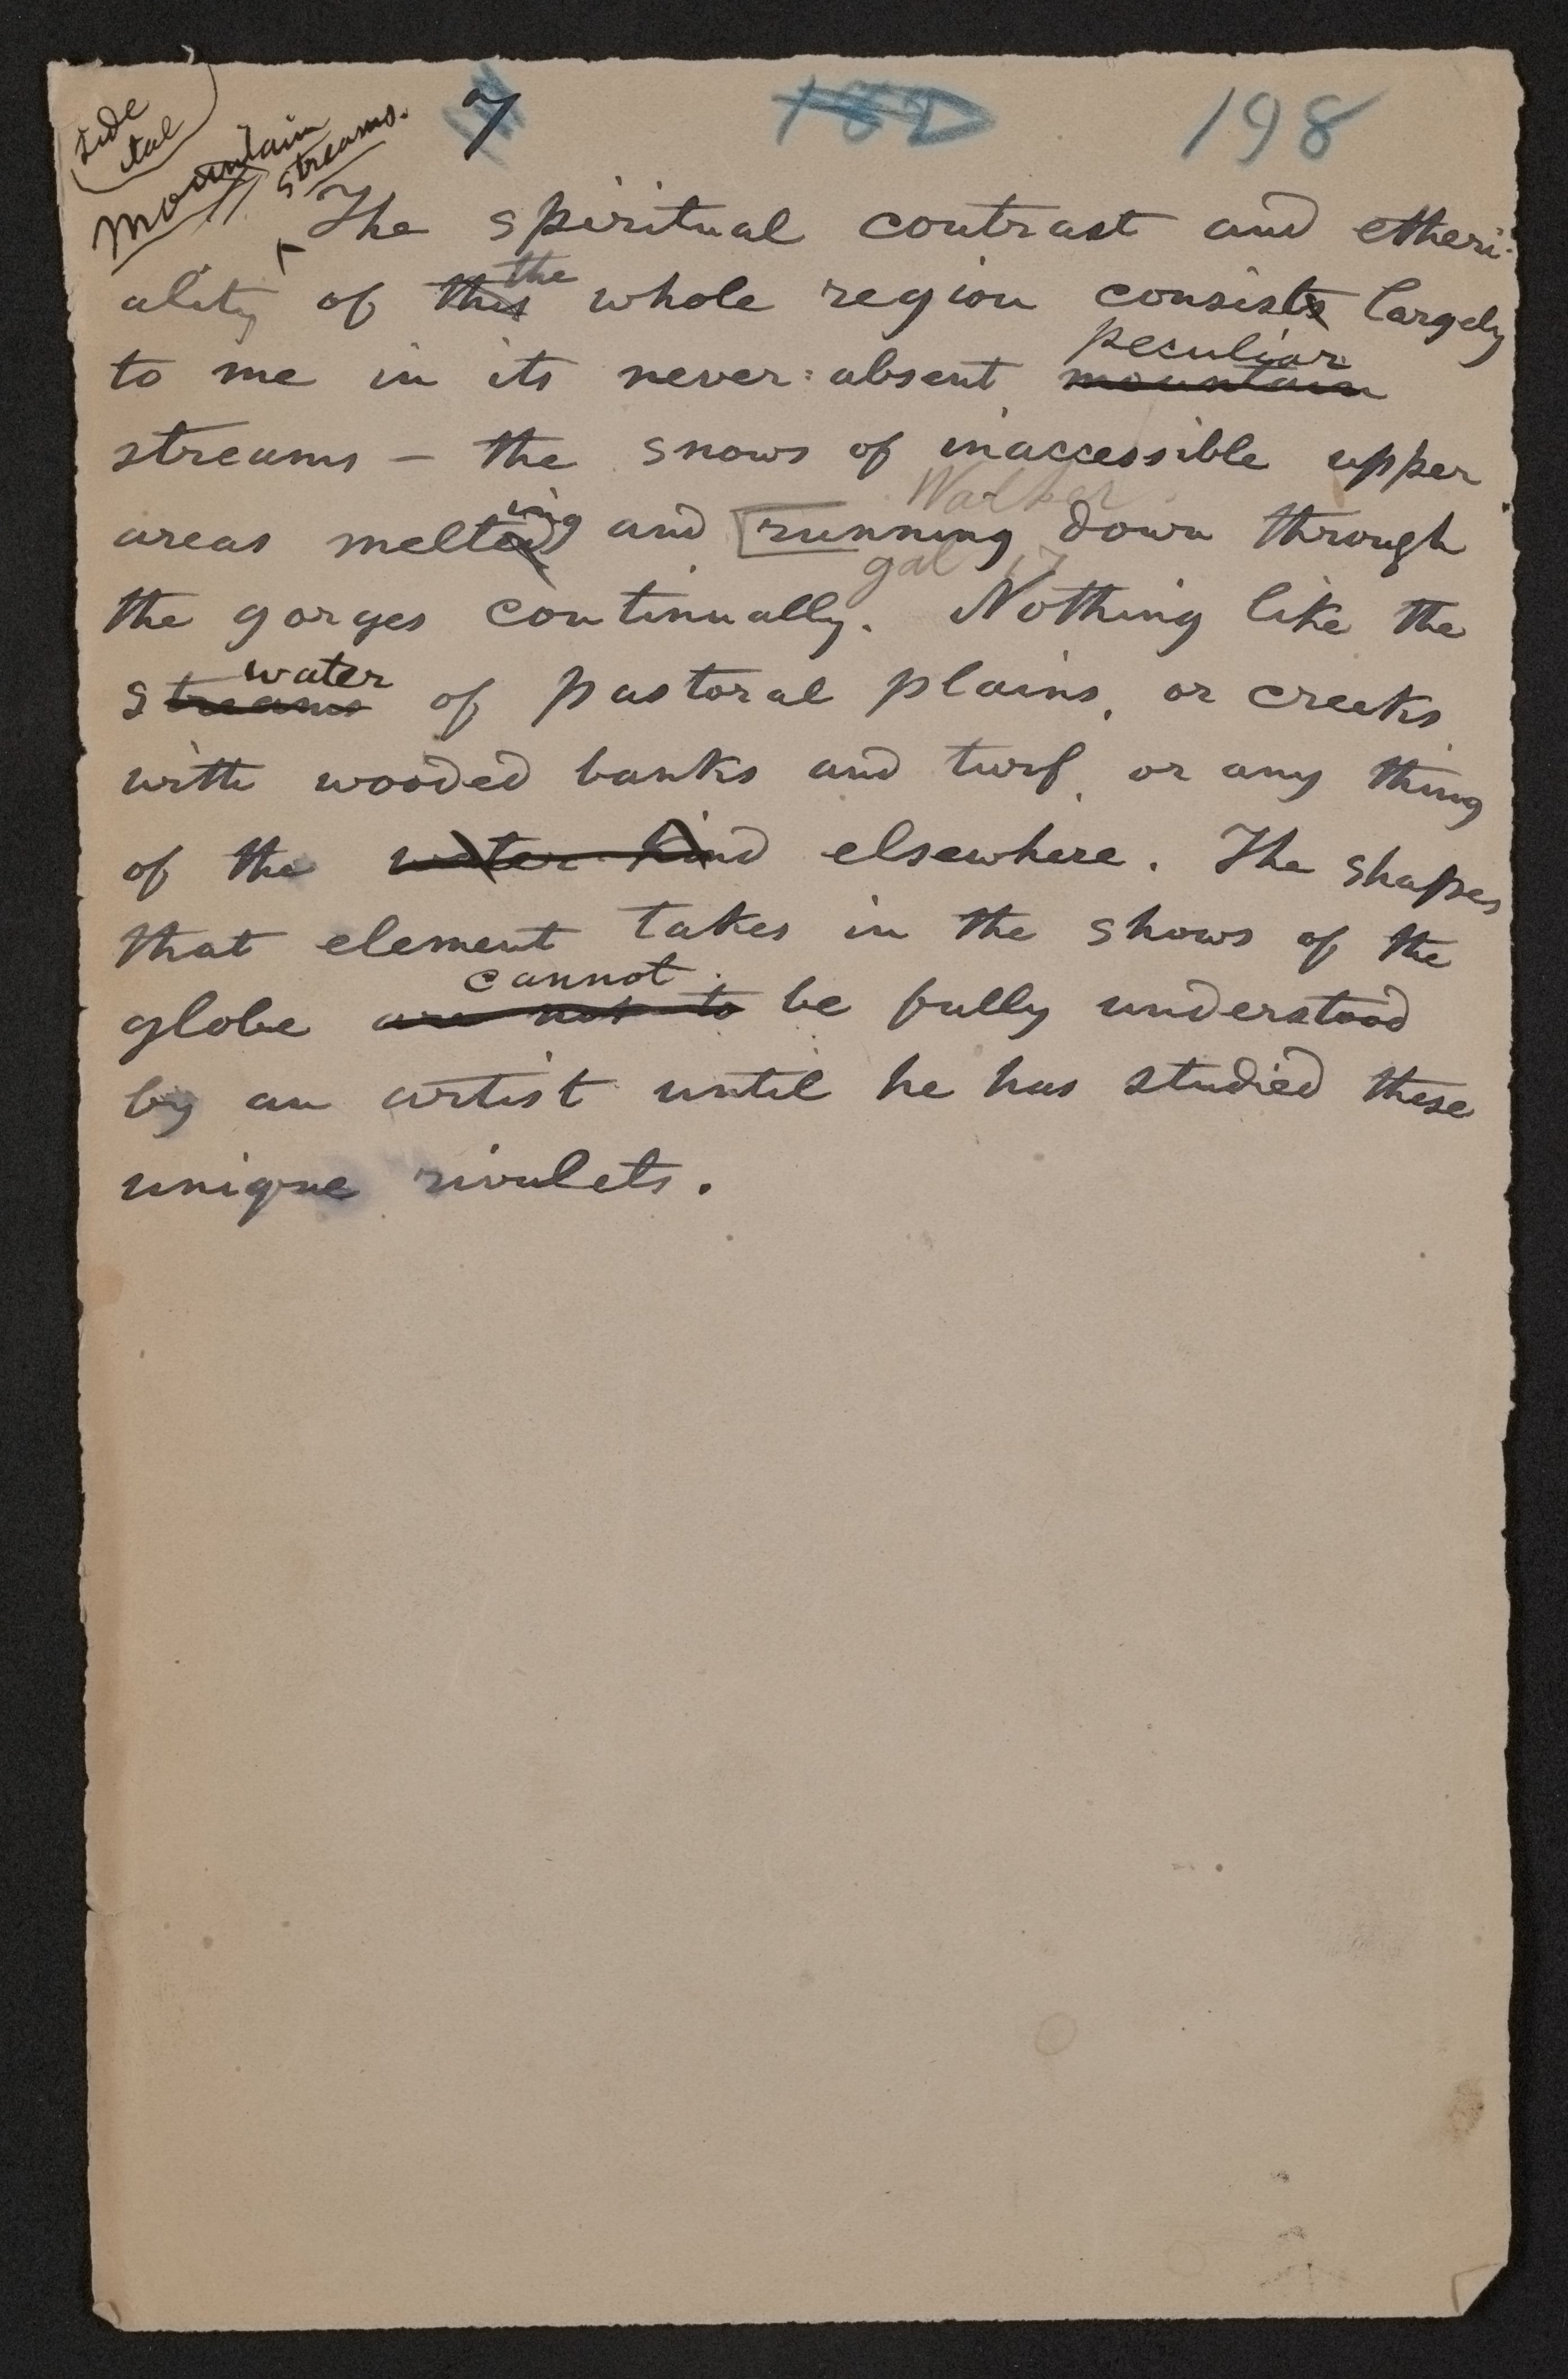 side
ital
Mountain
streams.
7 102 198
The spiritual contrast and etheri-
ality of this the whole region consists largely
to me in its never-absent mountain peculiar
streams — the snows of inaccessible upper
Walker
areas melted ing and running down through
gal 17
the gorges continually. Nothing like the
streams water of pastoral plains, or creeks
with wooded banks and turf, or any thing
of the water kind elsewhere. The shapes
that element takes in the shows of the
globe are not to cannot be fully understood
by an artist until he has studied these
unique rivulets.